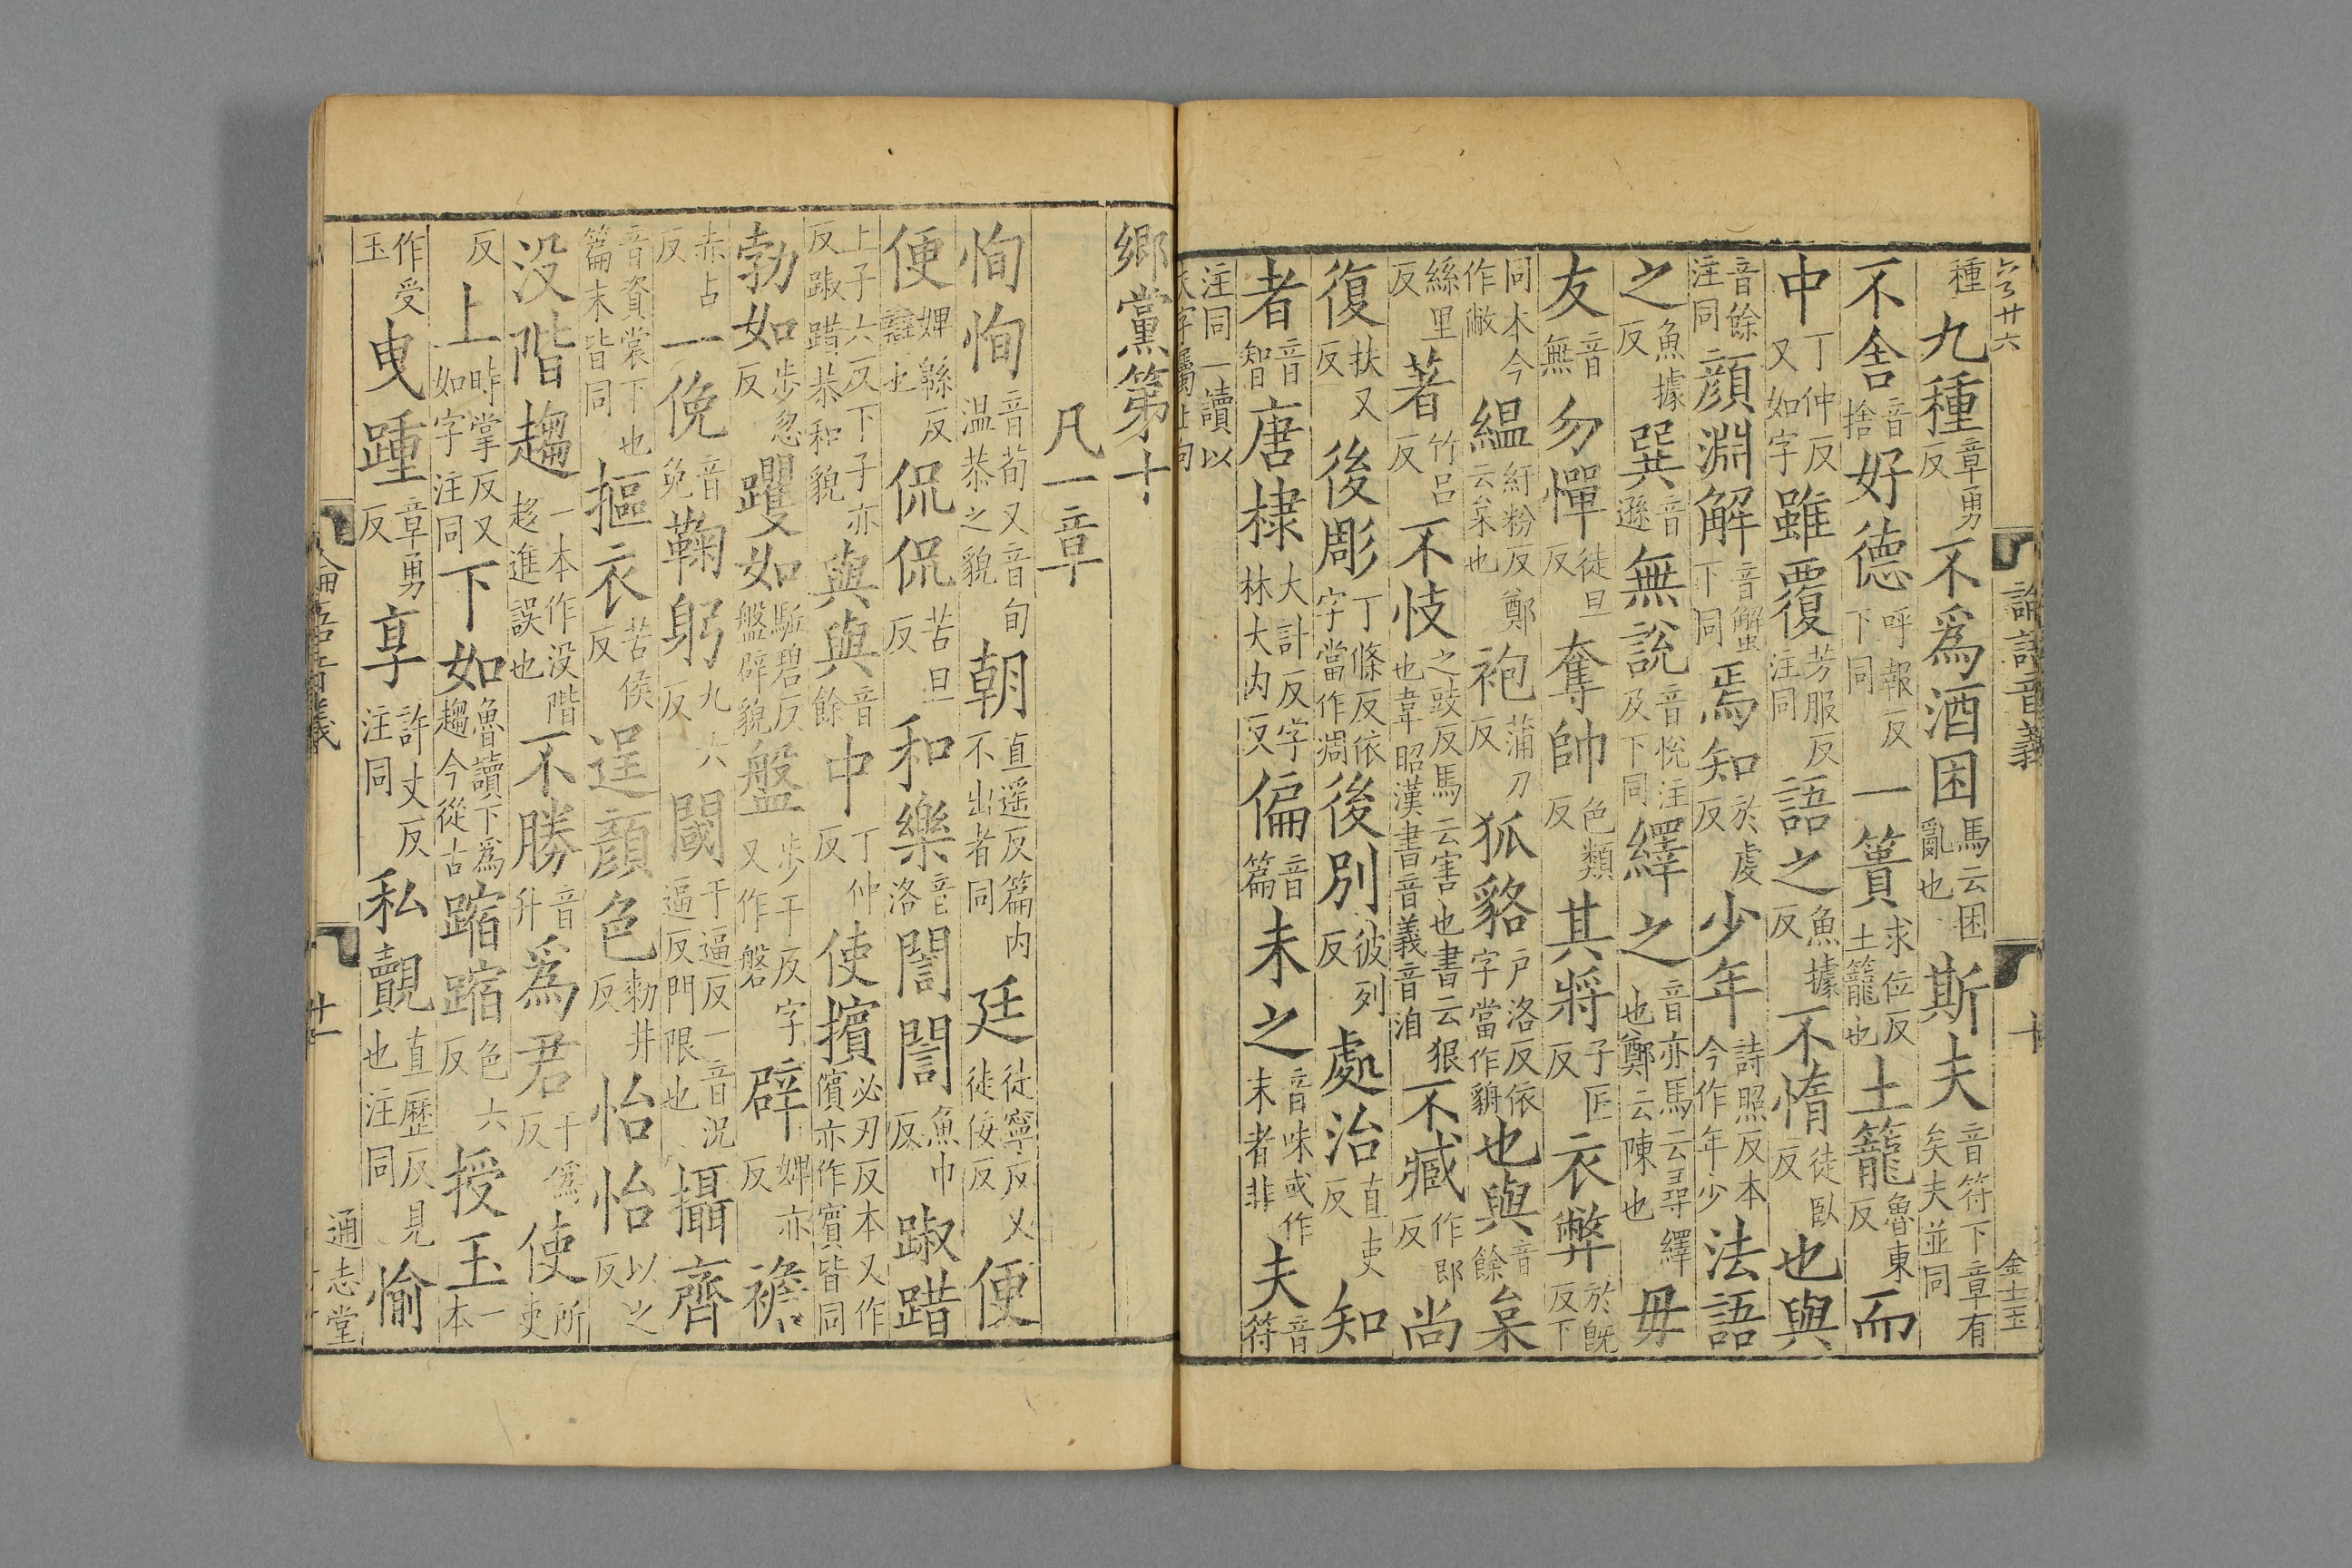 六百廿六 論語音義 十 金士玉
種九種章勇反不爲酒困馬云困亂也斯夫音符下章有矣夫並同
不舍音捨好德呼報反下同一簣求位反土籠也土籠魯東反而
中丁仲反又如字雖覆芳服反注同語之魚據反不惰徒臥反也與
音餘注同顏淵解音蟹下同焉知於虔反少年詩照反本今作年少法語
之魚據反巽音遜無說音悅注及下同繹之音亦馬云尋繹也鄭云陳也毋
友音無勿憚徒旦反奪帥色類反其將子匠反衣弊於既反下
同本今作敝縕紆粉反鄭云枲也袍蒲刀反狐貉戶洛反依字當作貈也與音餘枲
絲里反著竹呂反不忮之豉反馬云害也書云狠也韋昭漢書音義音洎不臧作郎反尚
復扶又反後彫丁條反依字當作凋後別彼列反處治直吏反知
者音智唐棣大計反字林大內反偏音篇未之音味或作末者非夫音符
注同一讀以夫字屬上句
鄉黨第十
凡一章
恂恂音荀又音旬温恭之貌朝直遥反篇内不出者同廷徒寧反又徒佞反便
便婢緜反辯也侃侃苦旦反和樂音洛誾誾魚巾反踧踖
上子六反下子亦反踧踖恭和貌與與音餘中丁仲反使擯必刃反本又作儐亦作賓皆同
勃如步忽反躩如驅碧反盤辟貌盤步干反字又作磐辟婢亦反襜
赤占反一俛音免鞠躬九六反閾于逼反一音況逼反門限也攝齊
音資裳下也篇末皆同摳衣苦侯反逞顏色勑井反怡怡以之反
没階趨一本作没階趨進誤也不勝音升爲君于僞反使所吏
反上時掌反又如字注同下如魯讀下爲趨今從古蹜蹜色六反授玉一本
作受玉曳踵章勇反享許丈反注同私覿直歷反見也注同愉
論語音義 十一 通志堂